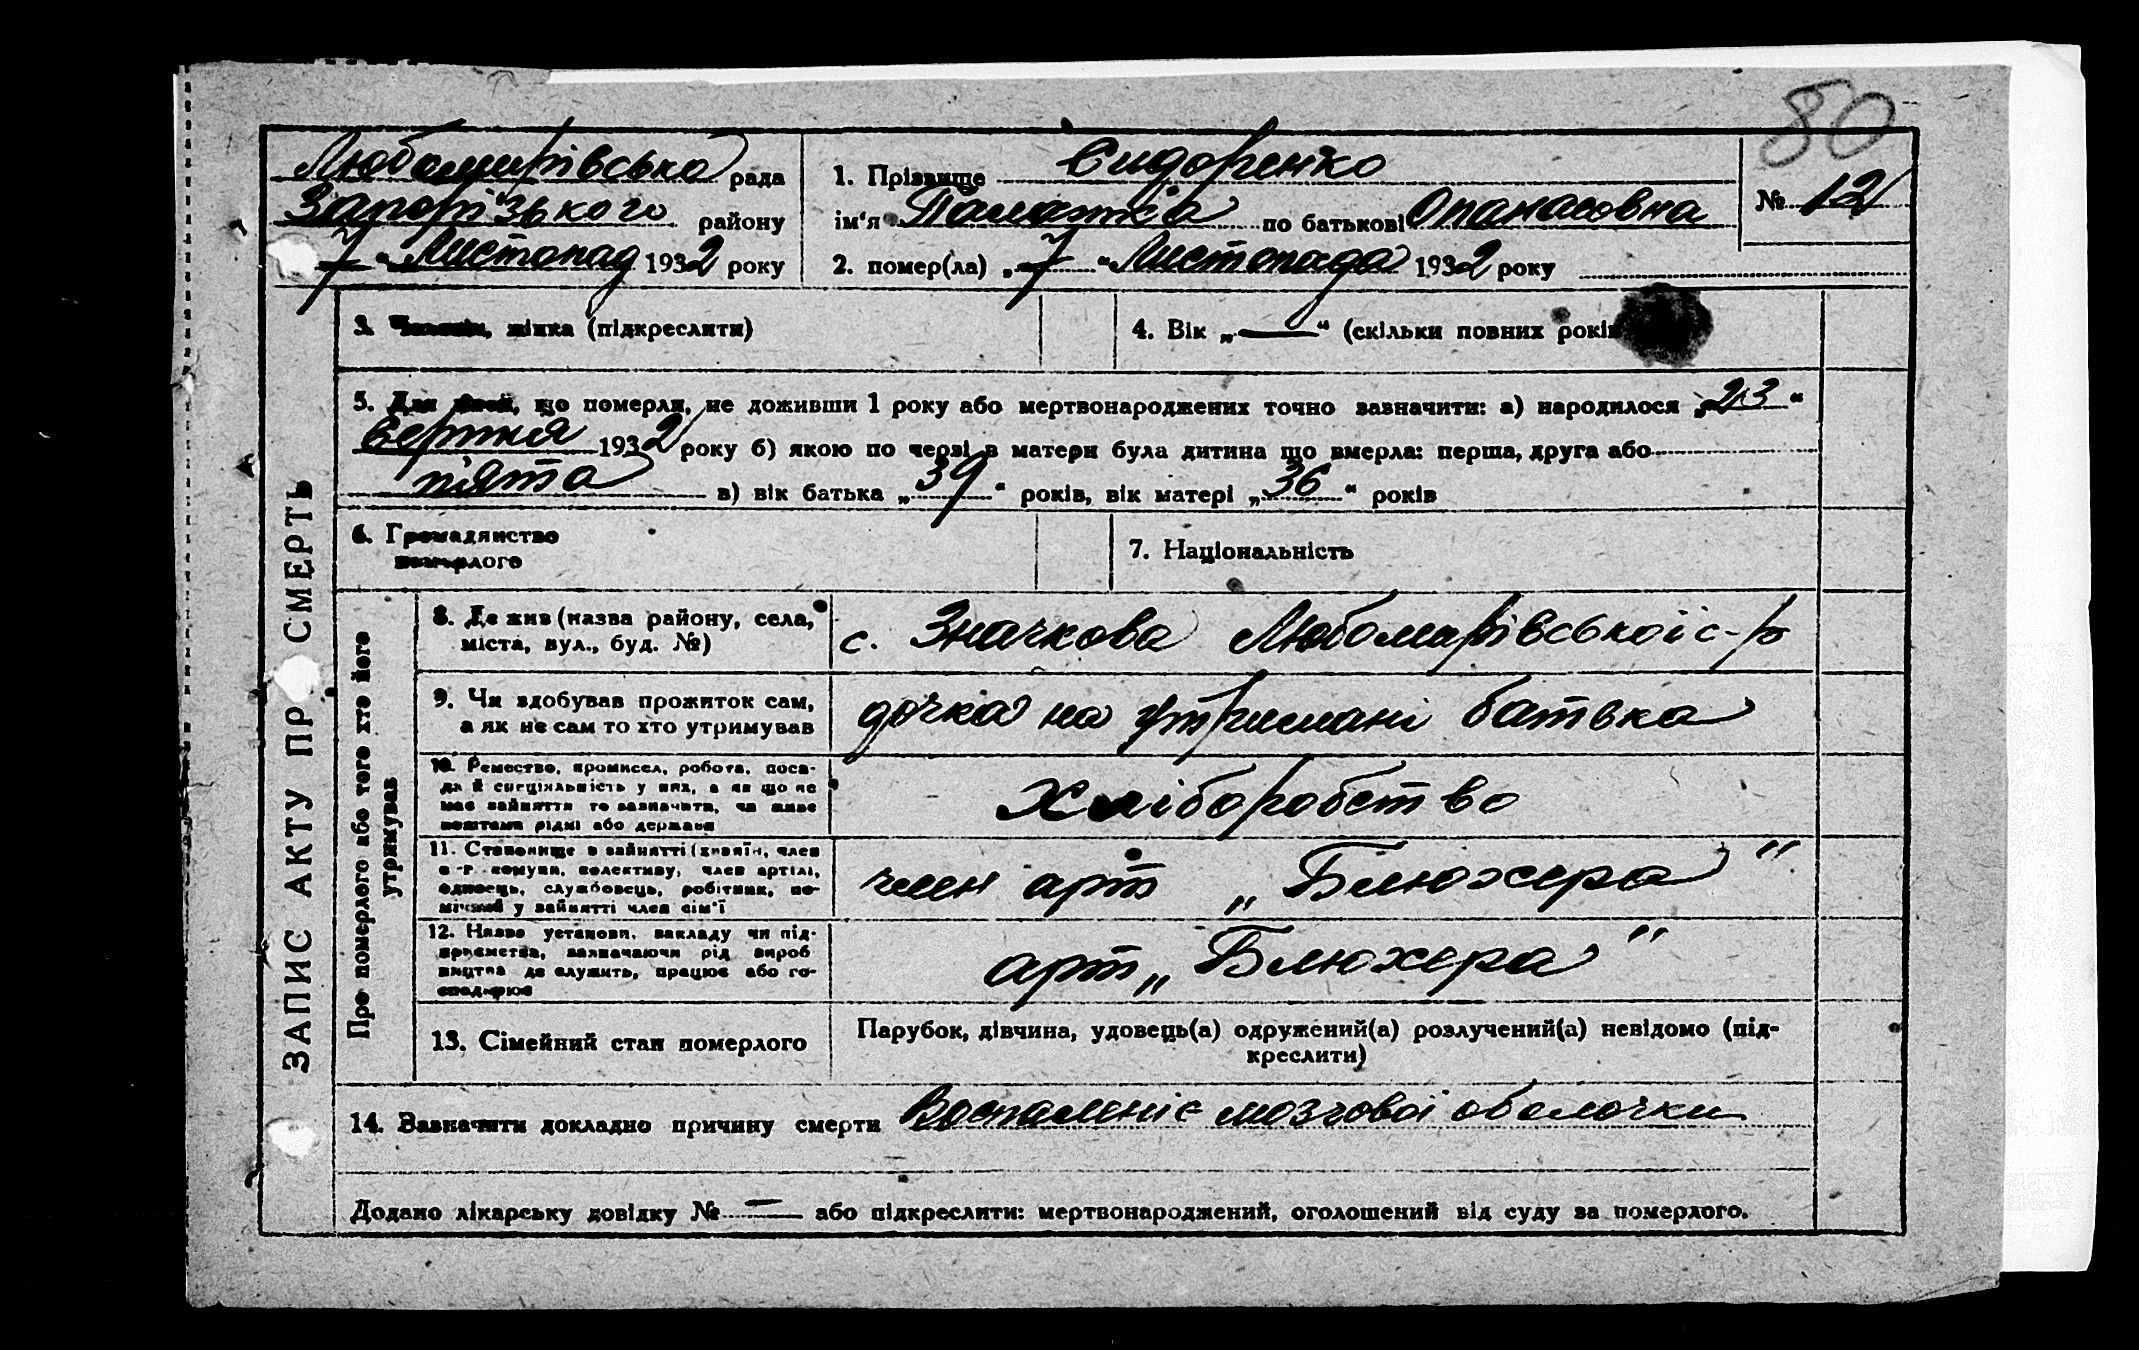 80
Любомирівська рада
Запорізького району
"7" Листопад 1932 року
1. Прізвище Сидоренко
ім'я Палажка по батькові Опанасовна
2. помер(ла) „7" Листопада 1932 року
№ 12
3. Чоловік, жінка (підкреслити)
4. Вік „—" (скільки повних років
5. Для дітей, що померли, не доживши 1 року або мертвонароджених точно зазначити: а) народилося „23"
вертня 1932 року б) якою по черзі в матери була дитина що вмерла: перша, друга або
п'ята в) вік батька „39" років, вік матері „36" років
6. Громадянство
померлого
7. Національність
ЗАПИС АКТУ ПР СМЕРТЬ
Про померлого або того хто його
утримував
8. Де жив (назва району, села,
міста, вул., буд. №)
с. Значкова Любомирівської с-р
9. Чи здобував прожиток сам,
а як не сам то хто утримував
дочка на утримані батька
10. Ремество, промисел, робота, поса-
да й спеціяльність у них, а як що не
має зайняття то зазначити, чи живе
коштами рідні або держави
Хліборобство
11. Становище в зайнятті (хазяїн, член
с-г комуни, колективу, член артілі,
одинець, службовець, робітник, по-
мічний у зайнятті член сім'ї
член арт „Блюхера"
12. Назва установи, закладу чи під-
приємства, зазначаючи рід вироб
ництва де служить, працює або го-
сподарює
арт „Блюхера"
13. Сімейний стан померлого
Парубок, дівчина, удовець(а) одружений(а) розлучений(а) невідомо (під-
креслити)
14. Зазначити докладно причину смерти Воспаленіє мозгової оболочки
Додано лікарську довідку № — або підкреслити: мертвонароджений, оголошений від суду за померлого.